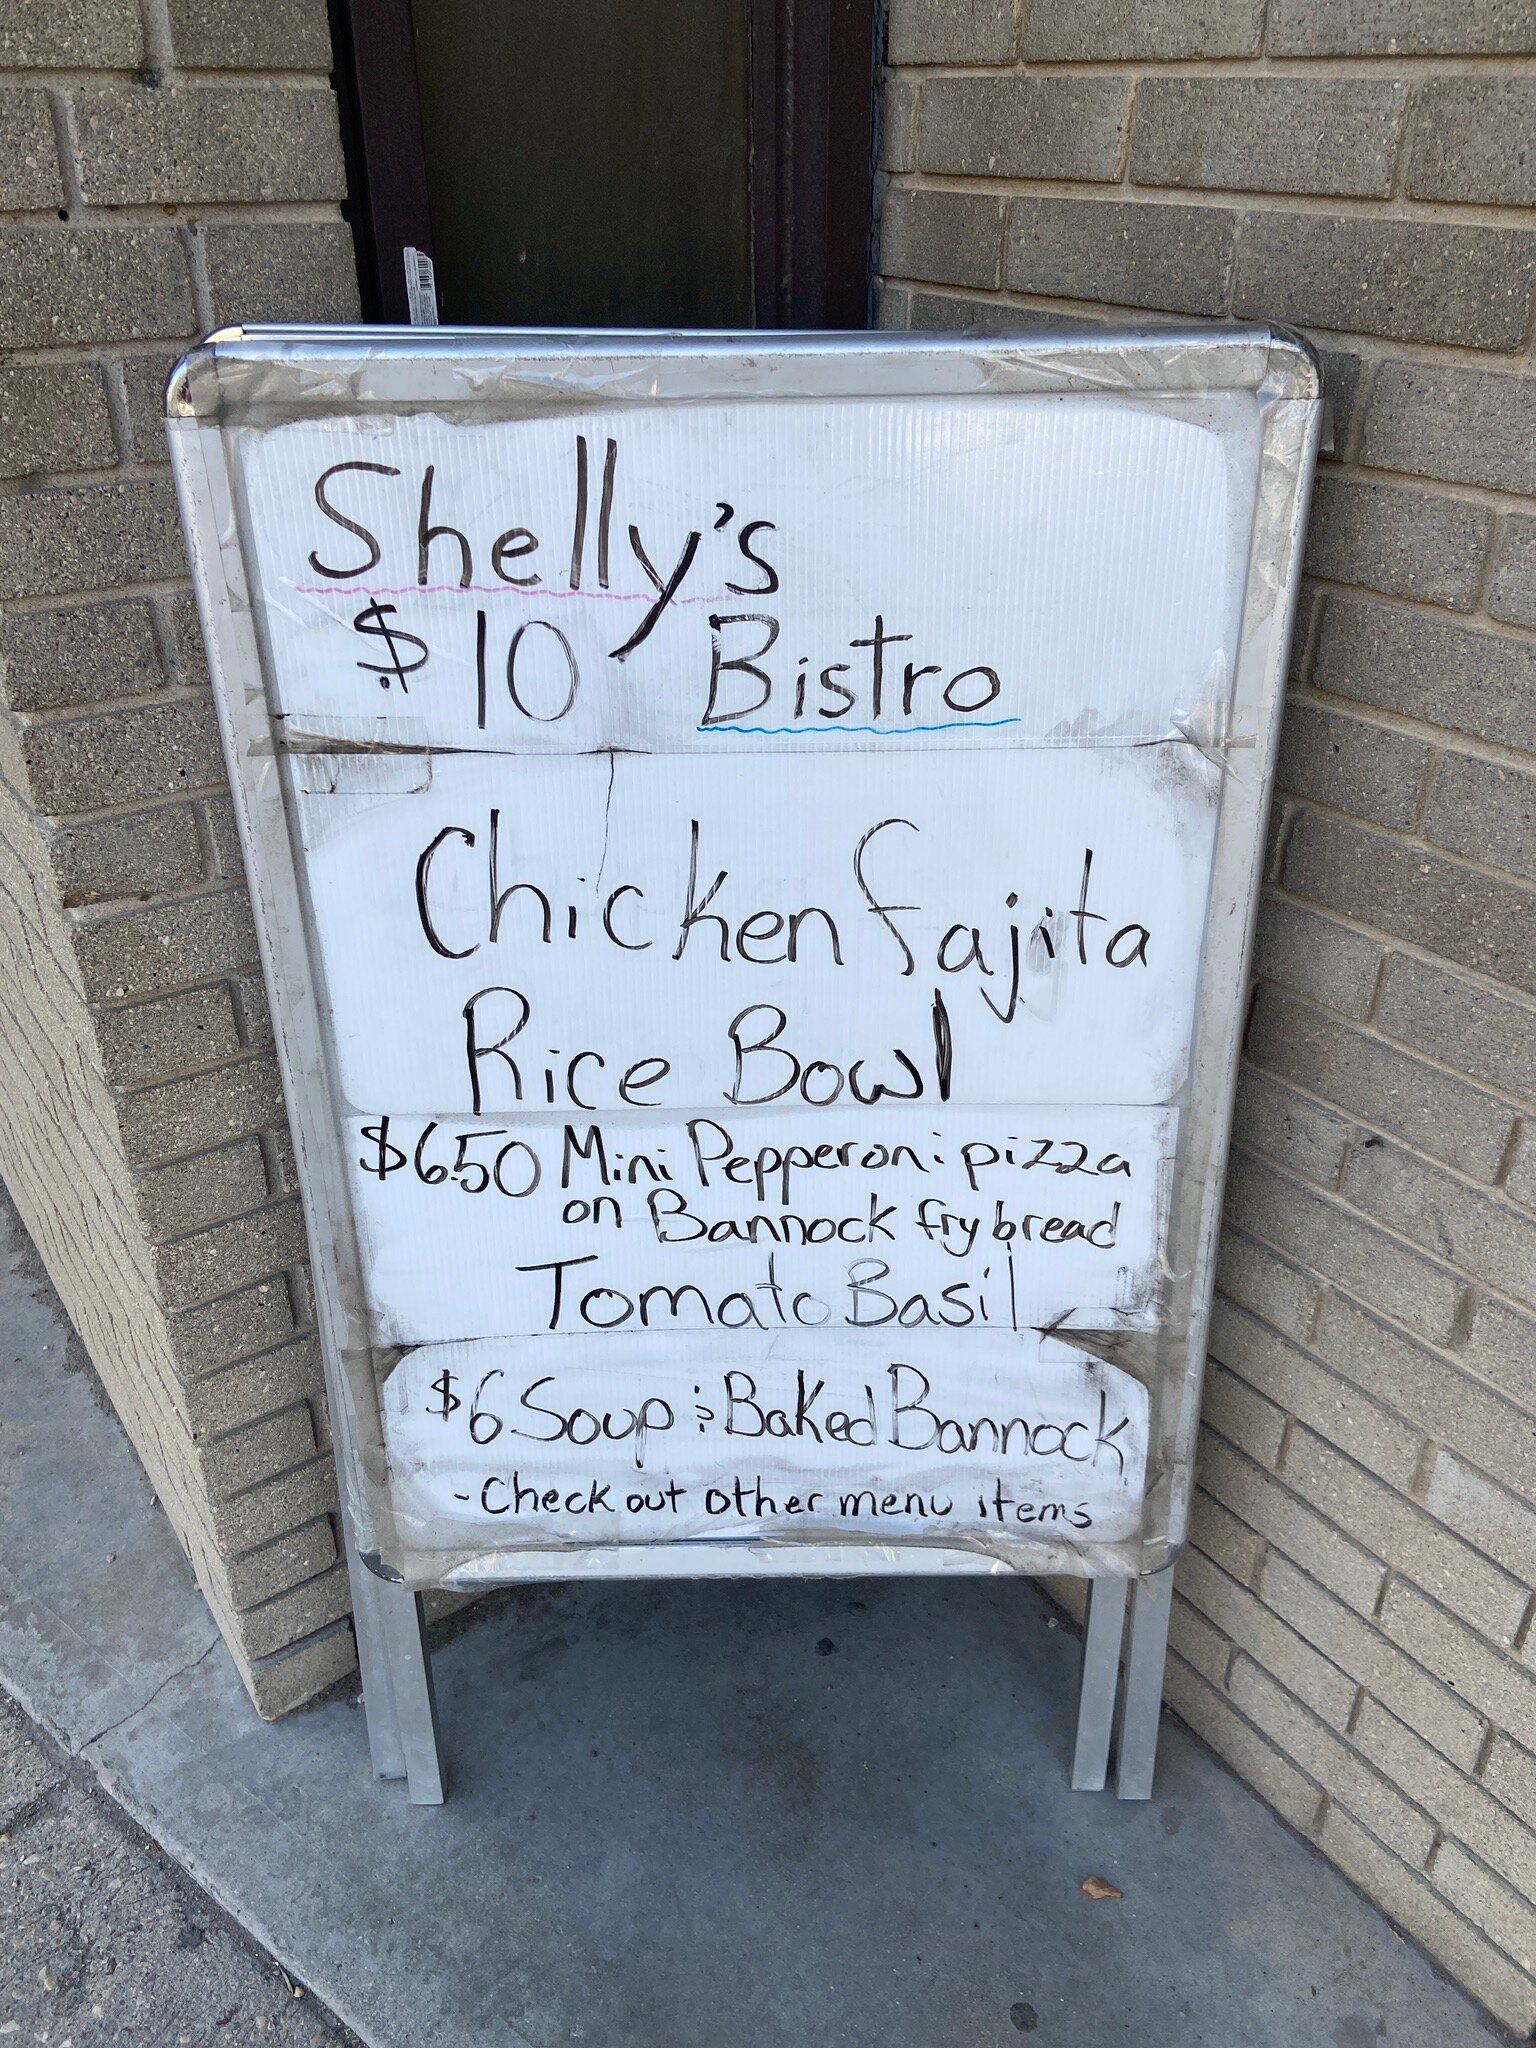 Shelly's
$10 Bistro
Chicken fajita
Rice Bowl
$6.50 Mini Pepperoni pizza
on Bannock fry bread
Tomato Basil
$6 Soup & Baked Bannock
- Check out other menu items